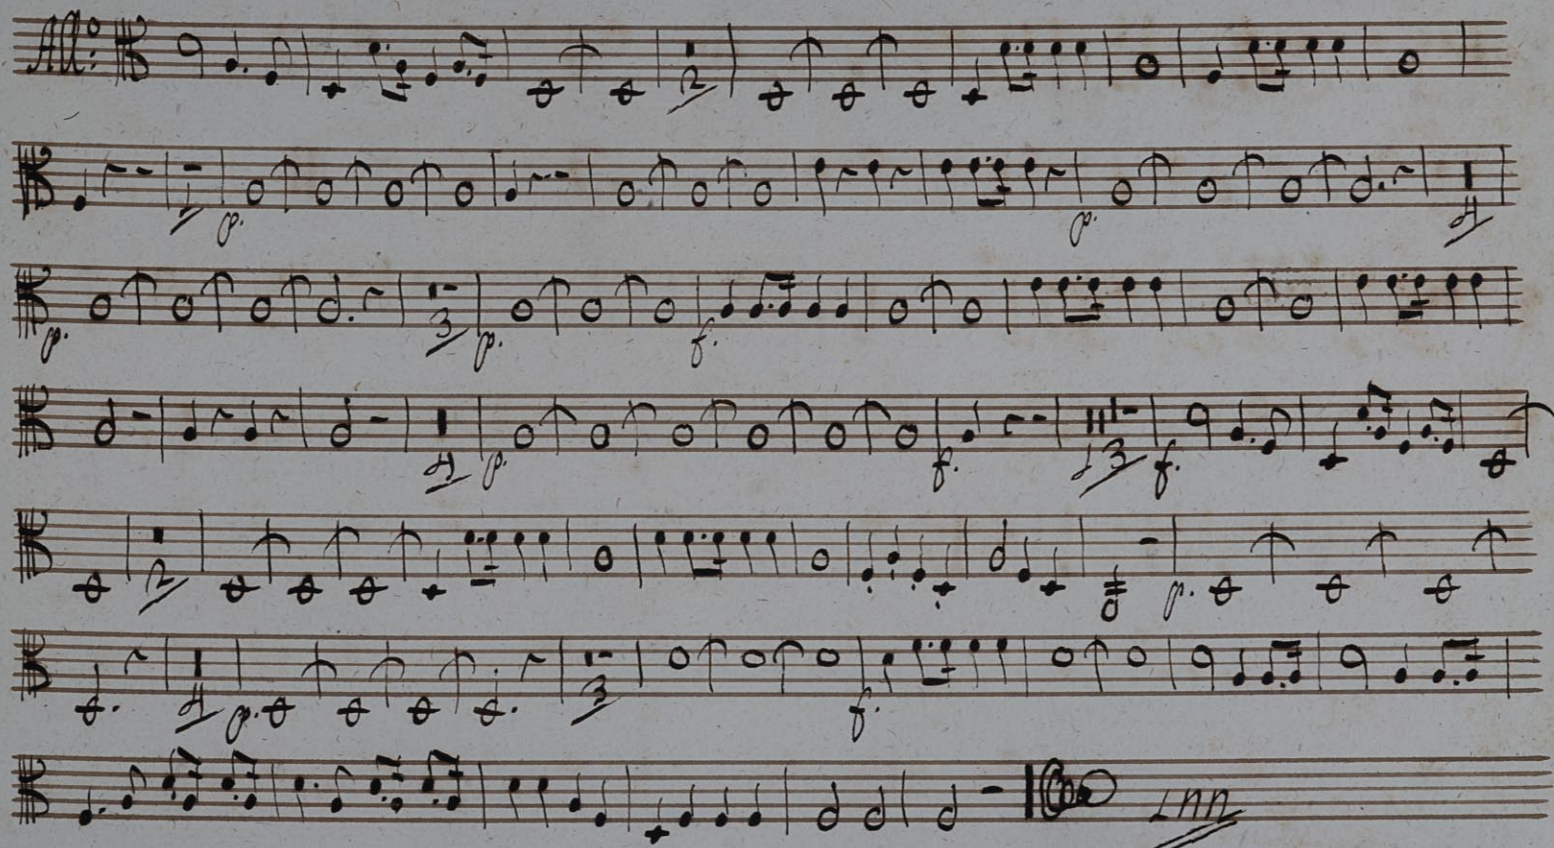 All:o
2
1 p. p. 4
p. 3 p. f.
4 p. f. 13 f.
2 p.
4 p. 3 f.